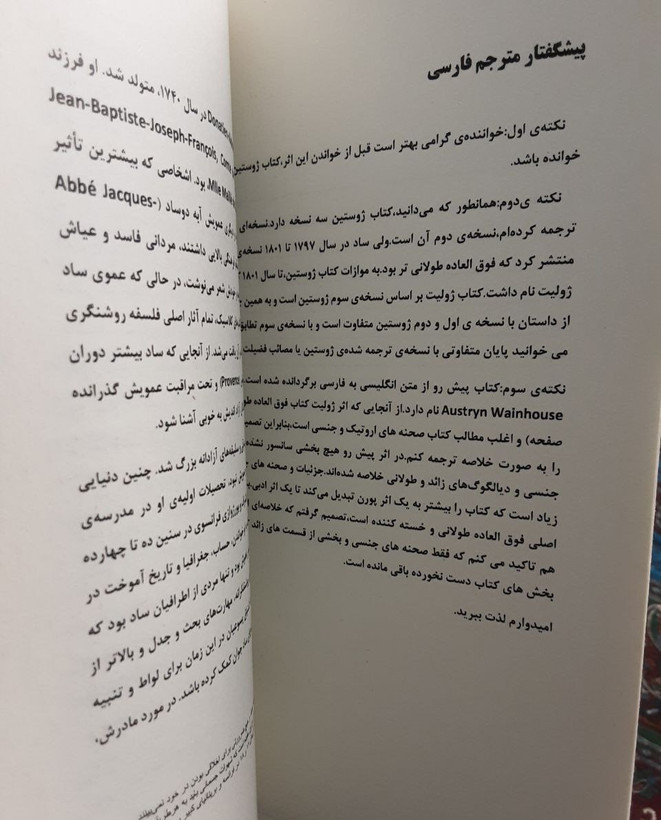 پیشگفتار مترجم فارسی
نکته‌ی اول:خواننده‌ی گرامی بهتر است قبل از خواندن این اثر،کتاب ژوستین
خوانده باشد.
نکته ی‌دوم:همانطور که می‌دانید،کتاب ژوستین سه نسخه دارد.نسخه‌ای
ترجمه کرده‌ام،نسخه‌ی دوم آن است.ولی ساد در سال ۱۷۹۷ تا ۱۸۰۱ نسخه‌ی
منتشر کرد که فوق العاده طولانی تر بود.به موازات کتاب ژوستین،تا سال ۱۸۰۱
ژولیت نام داشت.کتاب ژولیت بر اساس نسخه‌ی سوم ژوستین است و به همین
از داستان با نسخه ی اول و دوم ژوستین متفاوت است و با نسخه‌ی سوم
می خوانید پایان متفاوتی با نسخه‌ی ترجمه شده‌ی ژوستین یا مصائب فضیلت
نکته‌ی سوم:کتاب پیش رو از متن انگلیسی به فارسی برگردانده شده است.
Austryn Wainhouse نام دارد.از آنجایی که اثر ژولیت کتاب فوق العاده
صفحه) و اغلب مطالب کتاب صحنه های اروتیک و جنسی است،بنابراین
را به صورت خلاصه ترجمه کنم.در اثر پیش رو هیچ بخشی سانسور نشده
جنسی و دیالگوگ‌های زائد و طولانی خلاصه شده‌اند.جزئیات و صحنه های
زیاد است که کتاب را بیشتر به یک اثر پورن تبدیل می‌کند تا یک اثر ادبی.
اصلی فوق العاده طولانی و خسته کننده است،تصمیم گرفتم که خلاصه‌ای
هم تاکید می کنم که فقط صحنه های جنسی و بخشی از قسمت های زائد
بخش های کتاب دست نخورده باقی مانده است.
امیدوارم لذت ببرید.
در سال ۱۷۴۰، متولد شد. او فرزند
Jean-Baptiste-Joseph-François,
بود. اشخاصی که بیشترین تأثیر
عمویش آبه دوساد (Abbé Jacques-
بالایی داشتند، مردانی فاسد و عیاش
شعر می‌نوشت، در حالی که عموی ساد
کلاسیک، تمام آثار اصلی فلسفه روشنگری
یافت می‌شد. از آنجایی که ساد بیشتر دوران
و تحت مراقبت عمویش گذرانده
به خوبی آشنا شود.
آزادانه بزرگ شد. چنین دنیایی
نبود. تحصیلات اولیه‌ی او در مدرسه‌ی
فرانسوی در سنین ده تا چهارده
حساب، جغرافیا و تاریخ آموخت در
بود و تنها مردی از اطرافیان ساد بود که
مهارت‌های بحث و جدل و بالاتر از
در این زمان برای لواط و تنبیه
کمک کرده باشد. در مورد مادرش،